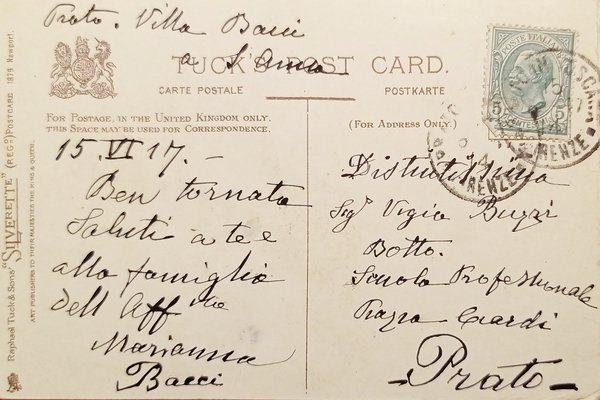 Prato. Villa Bacci
a S. Anna
TUCK'S POST CARD.
CARTE POSTALE
POSTKARTE
FOR POSTAGE, IN THE UNITED KINGDOM ONLY,
THIS SPACE MAY BE USED FOR CORRESPONDENCE.
(FOR ADDRESS ONLY.)
15.VI 17.-
Ben tornata
Saluti a te e
alla famiglia
dell'Aff ma
Marianna
Bacci
Distintissima
Sig.
Botto.
Scuola Professionale
Prato
POSTE ITALIANE
5 5
Raphael Tuck & Sons' "SILVERETTE" (REGD) POSTCARD 1879 Newport.
ART PUBLISHERS TO THEIR MAJESTIES THE KING & QUEEN.